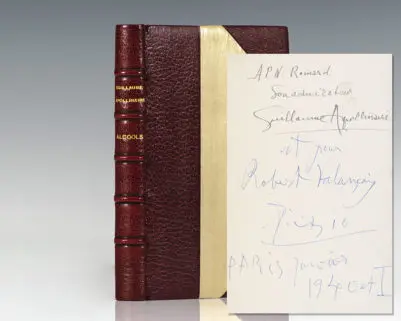 GUILLAUME
APOLLINAIRE
ALCOOLS
A P.N. Roinard
Son admirateur
Guillaume Apollinaire
et pour
Robert
Picasso
PARIS